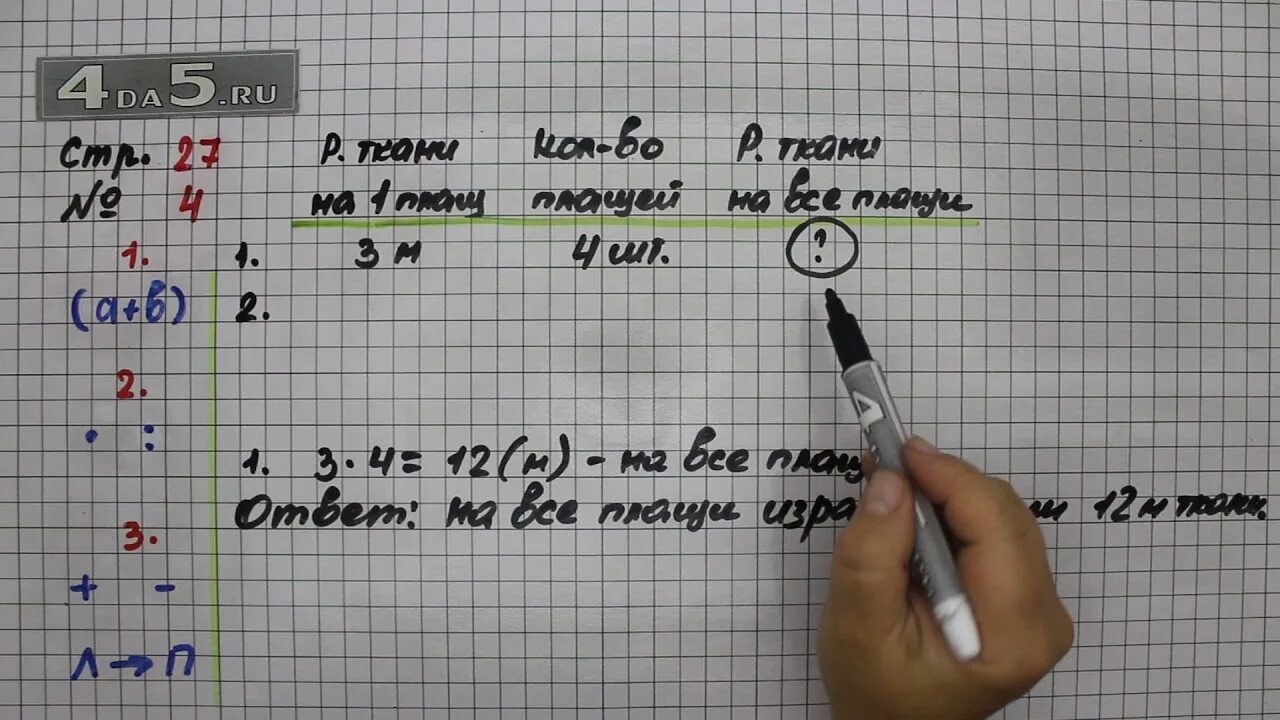 4DA5.RU
Стр. 27
№ 4
Р. ткани Кол-во Р. ткани
на 1 плащ плащей на все плащи
1. 3 м 4 шт. ?
2.
1.
(а+в)
2.
· :
3.
+ -
Л → П
1. 3·4=12(м) - на все
Ответ: на все плащи 12 м ткани.